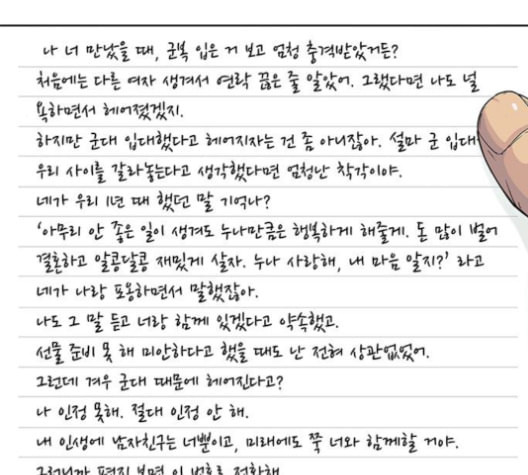 나 너 만났을 때, 군복 입은 거 보고 엄청 충격받았거든?
처음에는 다른 여자 생겨서 연락 끊은 줄 알았어. 그랬다면 나도 널
욕하면서 헤어졌겠지.
하지만 군대 입대했다고 헤어지자는 건 좀 아니잖아. 설마 군 입대
우리 사이를 갈라놓는다고 생각했다면 엄청난 착각이야.
네가 우리 1년 때 했던 말 기억나?
'아무리 안 좋은 일이 생겨도 누나만큼은 행복하게 해줄게. 돈 많이 벌어
결혼하고 알콩달콩 재밌게 살자. 누나 사랑해, 내 마음 알지?' 라고
네가 나랑 포옹하면서 말했잖아.
나도 그 말 듣고 너랑 함께 있겠다고 약속했고.
선물 준비 못 해 미안하다고 했을 때도 난 전혀 상관없었어.
그런데 겨우 군대 때문에 헤어진다고?
나 인정 못해. 절대 인정 안 해.
내 인생에 남자친구는 너뿐이고, 미래에도 쭉 너와 함께할 거야.
그러니까 편지 보면 이 번호로 전화해